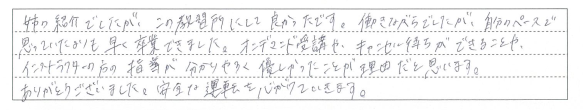 姉の紹介でしたが、この教習所にして良かったです。働きながらでしたが、自分のペースで
思っていたよりも早く卒業できました。オンデマンド受講や、キャンセル待ちができることや、
インストラクターの方の指導が分かりやすく優しかったことが理由だと思います。
ありがとうございました。安全な運転を心がけていきます。